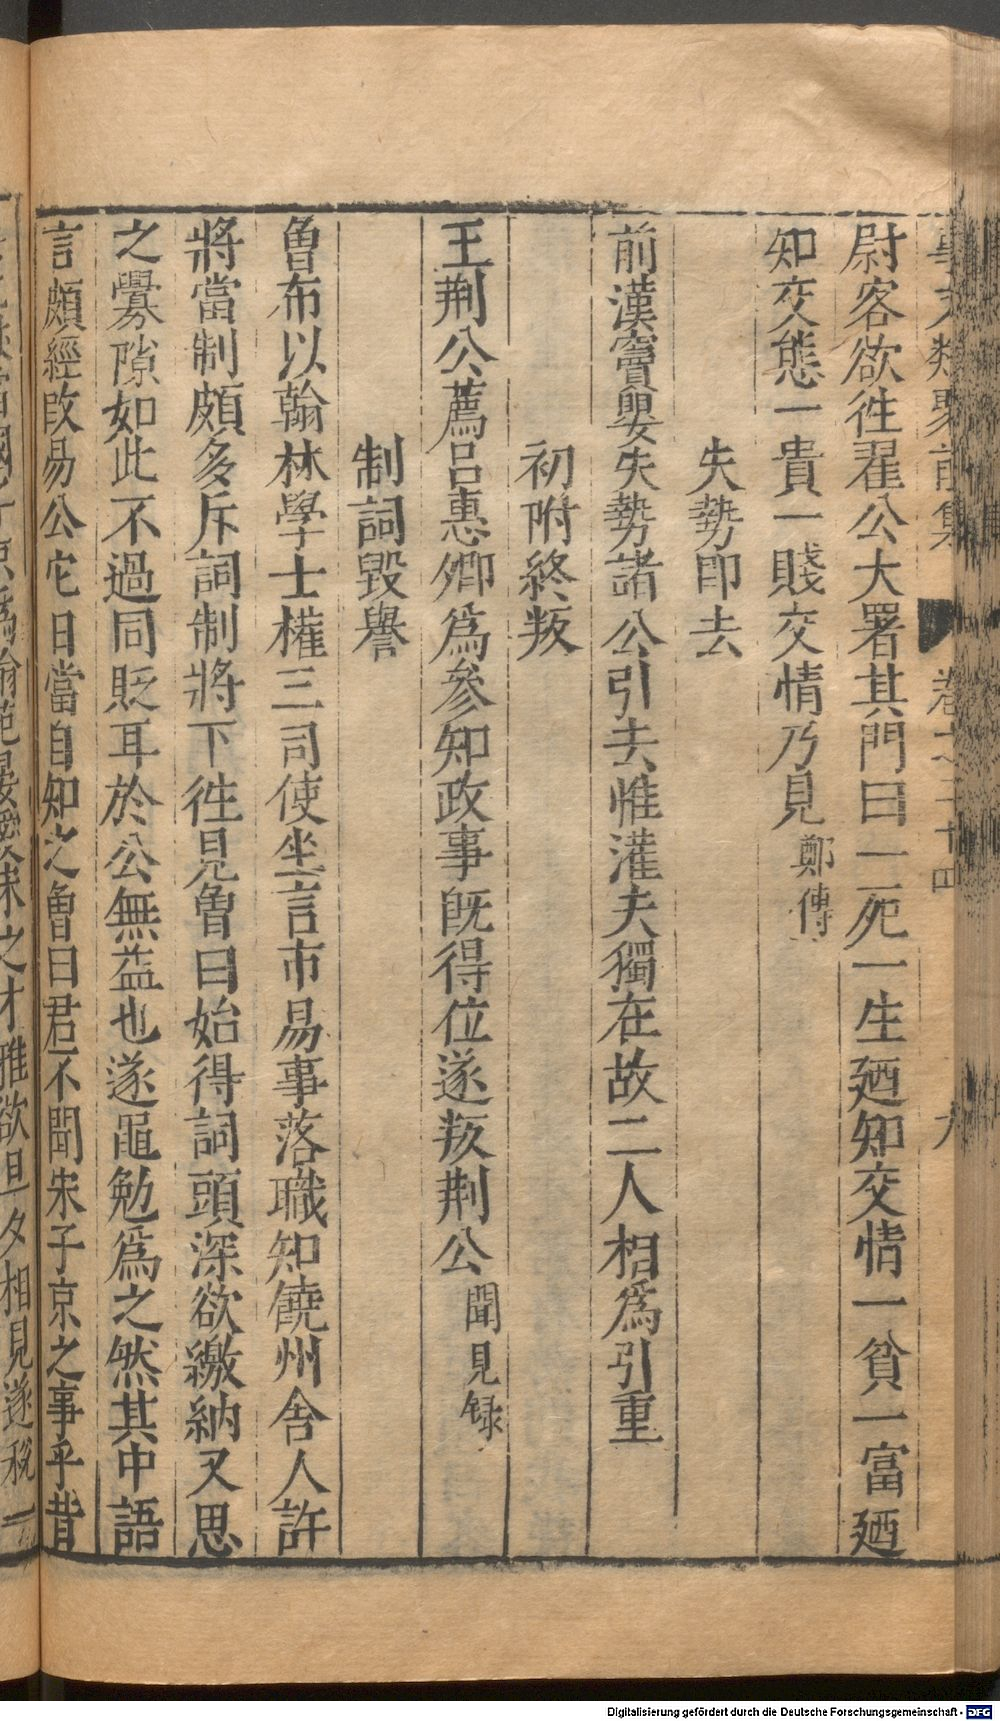 事文類聚前集 卷之二十四 九
尉客欲徃翟公大署其門曰一死一生廼知交情一貧一富廼
知交態一貴一賤交情乃見鄭傳
失勢即去
前漢竇嬰失勢諸公引去惟灌夫獨在故二人相爲引重
初附終叛
王荆公薦呂惠卿爲參知政事旣得位遂叛荆公聞見録
制詞毀譽
魯布以翰林學士權三司使坐言市易事落職知饒州舎人許
將當制頗多斥詞制將下徃見魯曰始得詞頭深欲繳納又思
之釁隙如此不過同貶耳於公無益也遂黽勉爲之然其中語
言頗經改易公它日當自知之魯曰君不聞宋子京之事乎昔
相見遂稅一
Digitalisierung gefördert durch die Deutsche Forschungsgemeinschaft - DFG